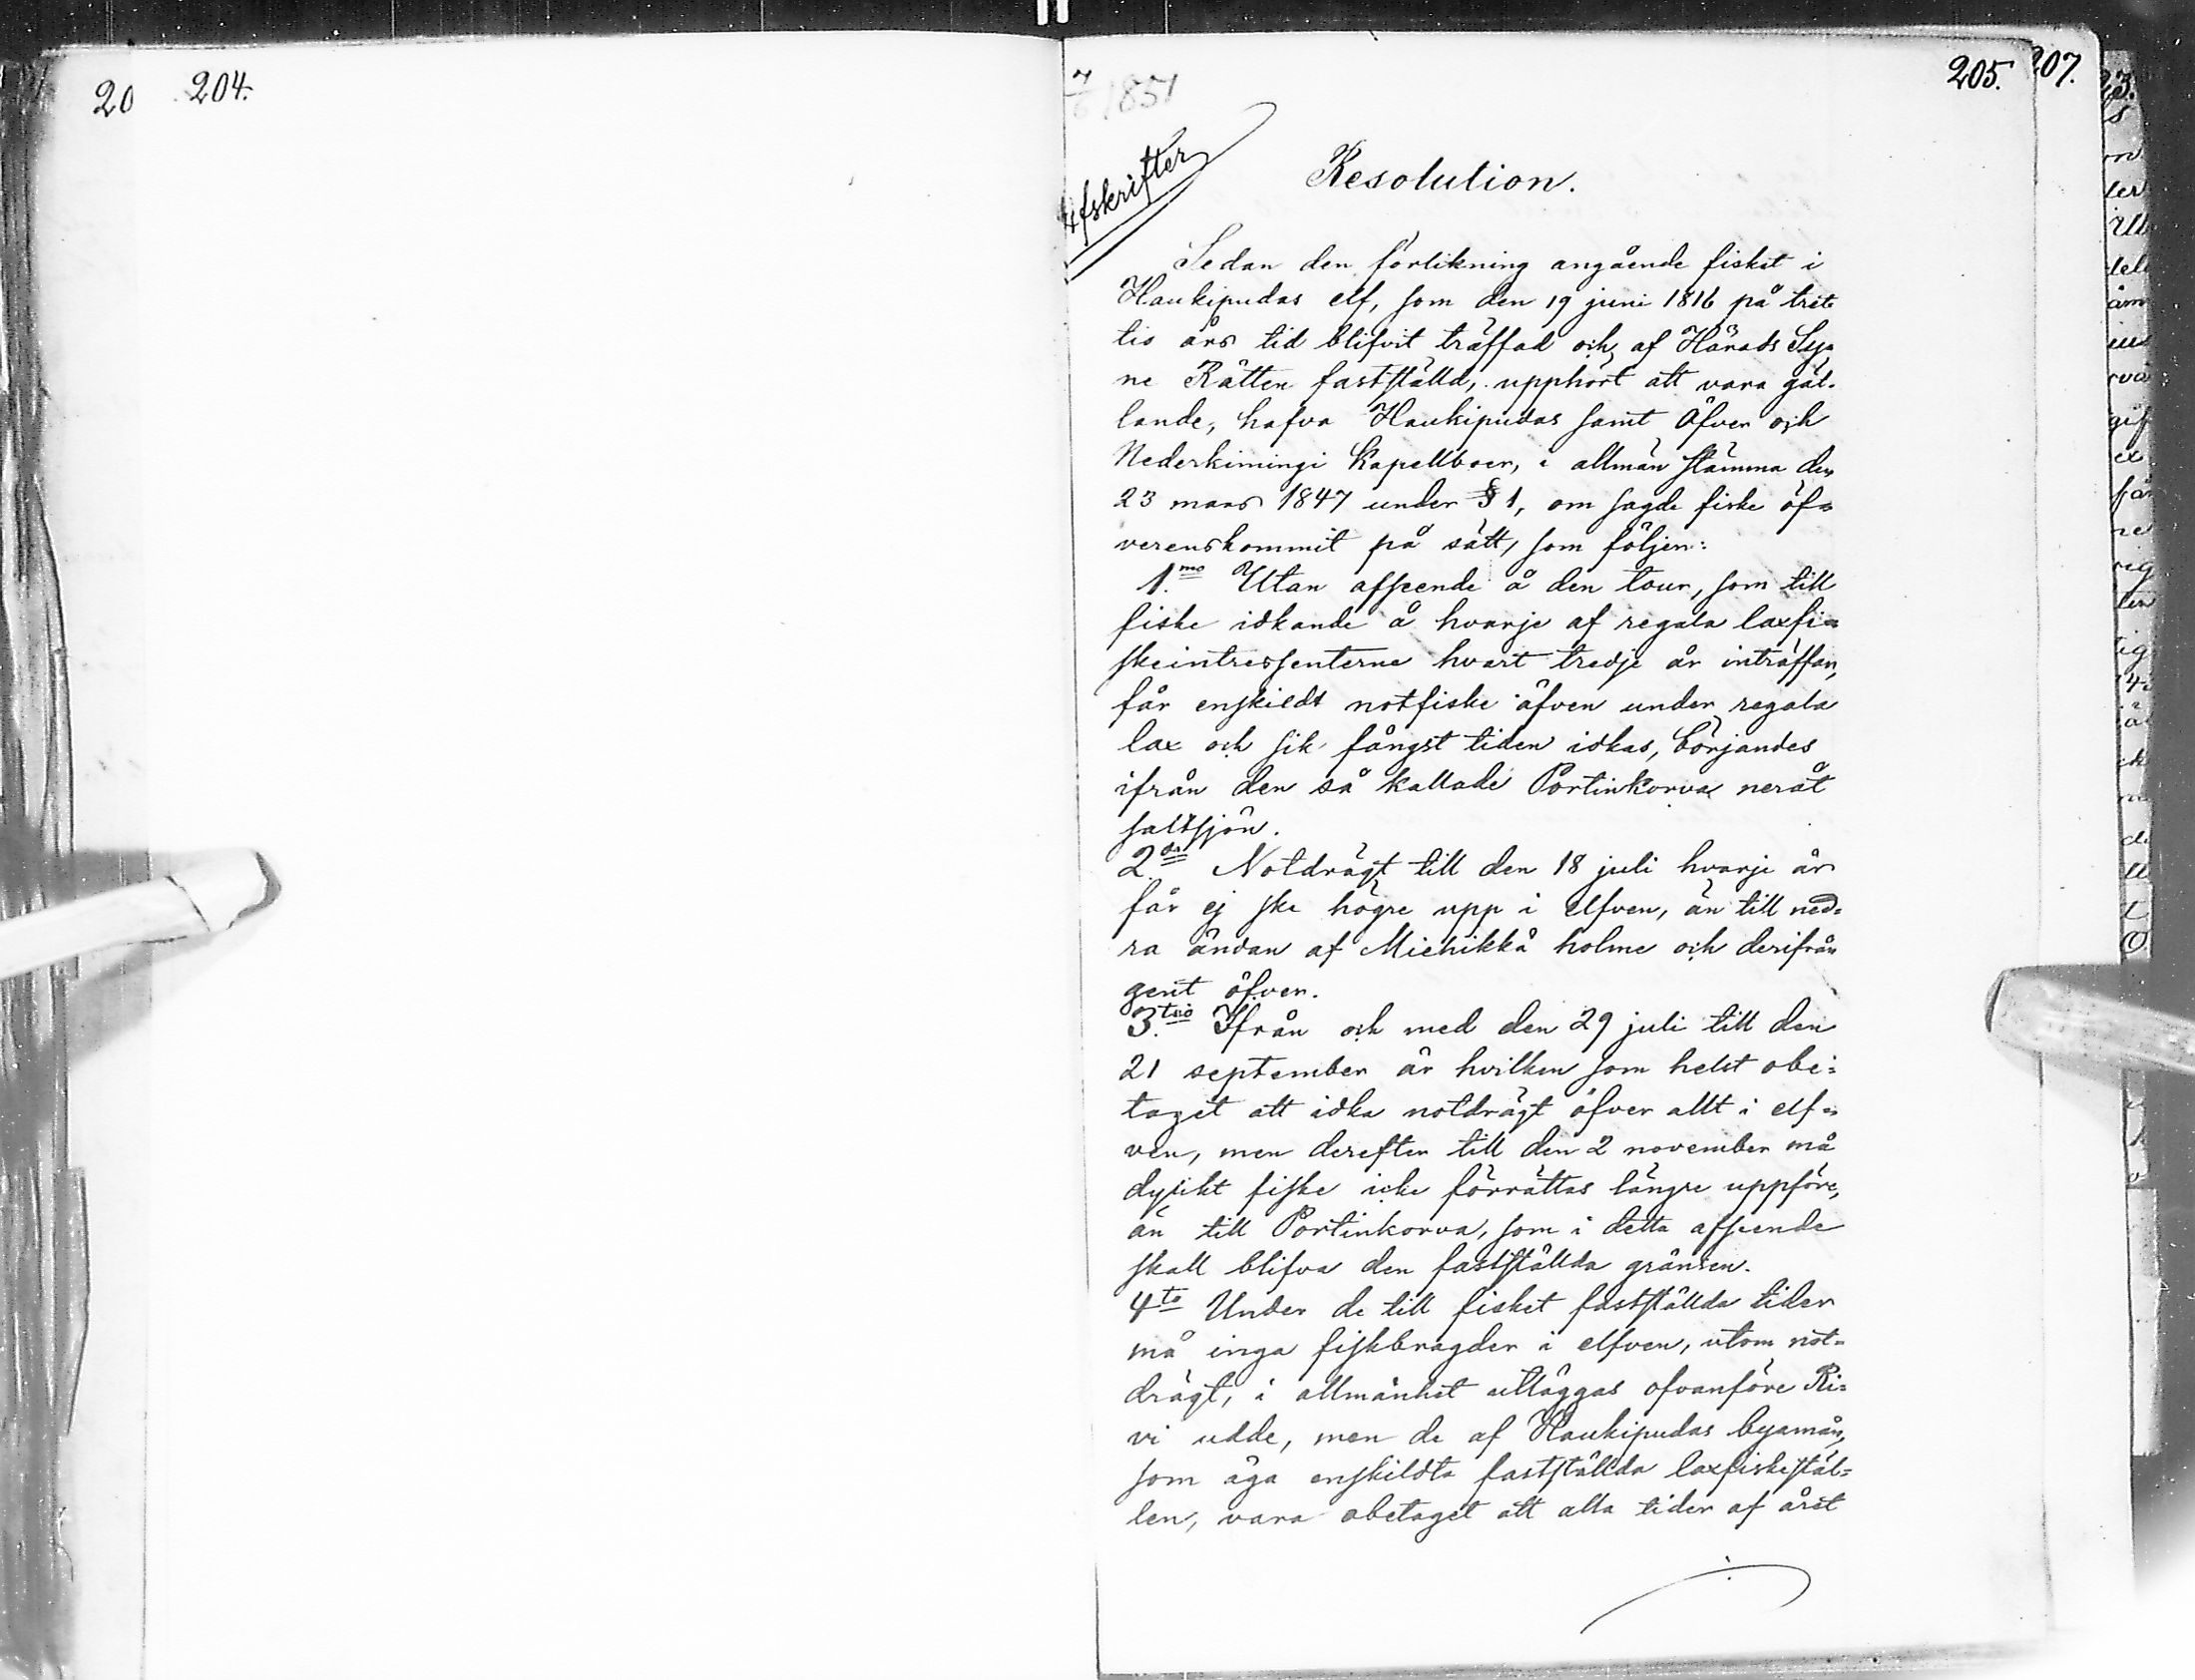 20 204.
205. 207.
7/6 1851
Afskrifter
Resolution.
Sedan den förlikning angående fisket i
Haukipudas elf, som den 19 juni 1816 på tret-
tio års tid blifvit träffad och af Härads Sy-
ne Rätten fastställd, upphört att vara gäl-
lande, hafva Haukipudas samt Öfver och
Nederkimingi Kapellboer, i allmän stämma den
23 mars 1847 under § 1, om sagde fiske öf-
verenskommit på sätt, som följer:
1.mo Utan afseende å den tour, som till
fiske idkande å hvarje af regala laxfi-
skeintressenterne hvart tredje år inträffar,
får enskildt notfiske äfven under regala
lax och sik fångst tiden idkas, börjandes
ifrån den så kallade Portinkorva neråt
saltsjön.
2.do Notdrägt till den 18 juli hvarje år
får ej ske högre upp i elfven, än till ned-
ra ändan af Miehikkä holme och derifrån
gent öfver.
3.tio Ifrån och med den 29 juli till den
21 september är hvilken som helst obe-
taget att idka notdrägt öfver allt i elf-
ven, men derefter till den 2 november må
dylikt fiske icke förrättas längre uppföre,
än till Portinkorva, som i detta afseende
skall blifva den fastställda gränsen.
4to Under de till fisket fastställda tider
må inga fiskbragder i elfven, utom not-
drägt, i allmänhet utläggas ofvanföre Ri-
vi udde, men de af Haukipudas byamän,
som äga enskildta fastställda laxfiskestäl-
len, vara obetaget att alla tider af året